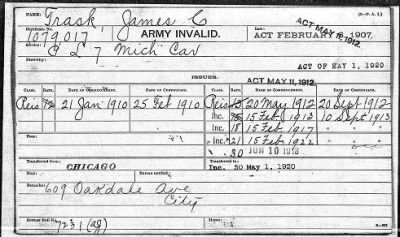 Trask, James C
Name (3-P. A. I.)
1079017 ARMY INVALID. ACT FEBRUARY 6, 1907. ACT MAY 11, 1912.
Certificate No. Law.
& L 7 Mich Cav
Service:
Disability: ACT OF MAY 1, 1920
ISSUES. ACT MAY 11, 1912
CLASS. RATE. DATE OF COMMENCEMENT. DATE OF CERTIFICATE. CLASS. RATE. DATE OF COMMENCEMENT. DATE OF CERTIFICATE.
Reis 12 21 Jan 1910 25 Feb 1910 Reis 20 May 1912 20 Sept 1912
Inc. 15 Feb 1913 10 Sept 1913
Inc. 18 15 Feb 1917 " " "
" 21 15 Feb 1922 " " "
30 JUN 10 1918
From: To:
Transferred from Transferred to
CHICAGO Inc. 50 May 1, 1920
Remarks: 609 Oakdale Ave
City
Former Roll No. 7231 (ag)